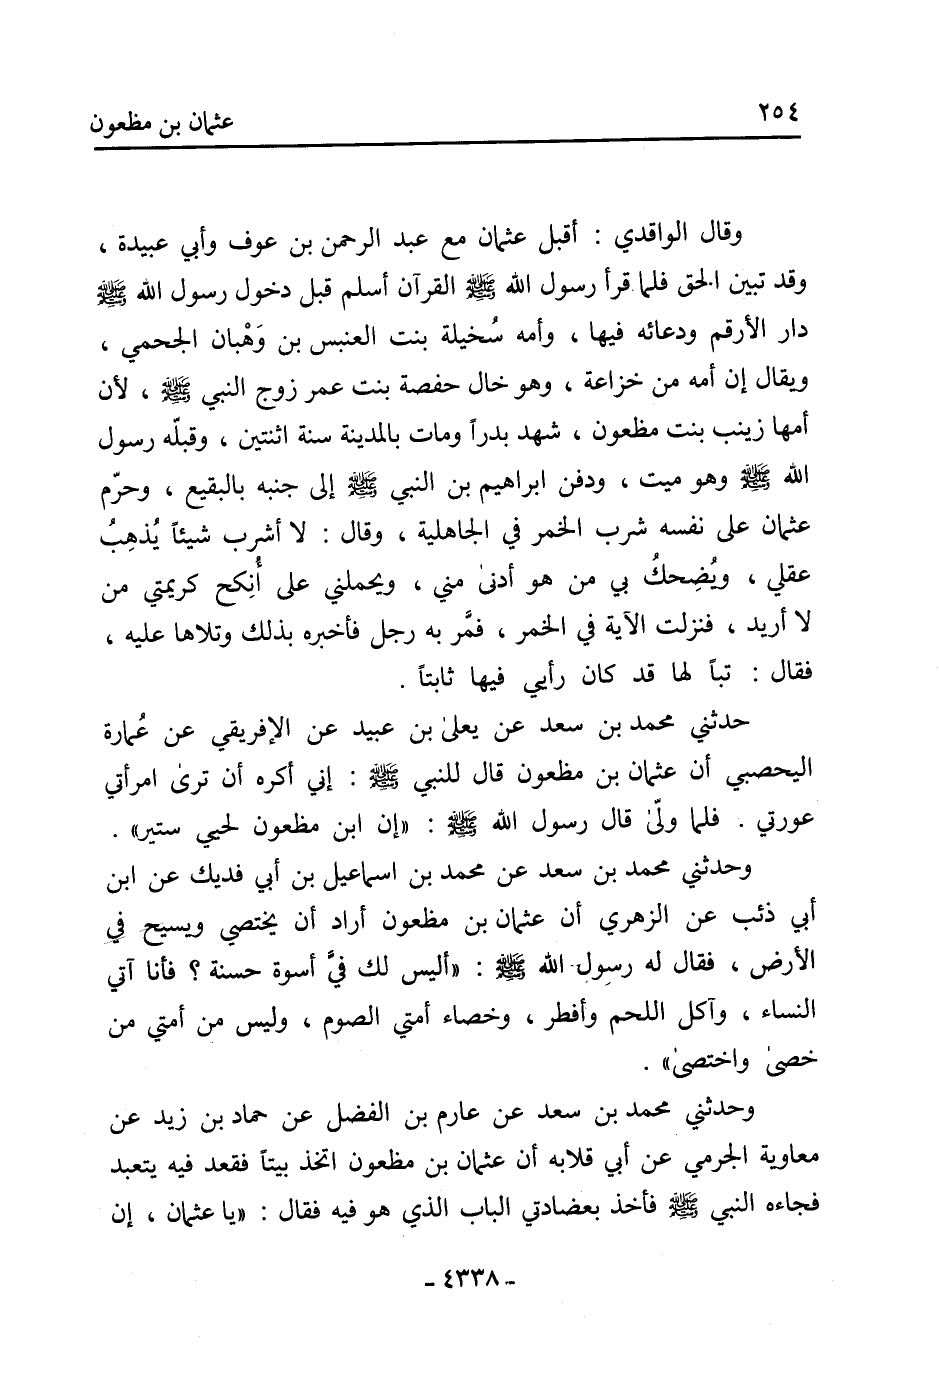 ٢٥٤
عثمان بن مظعون
وقال الواقدي : أقبل عثمان مع عبد الرحمن بن عوف وأبي عبيدة ،
وقد تبين الحق فلما قرأ رسول الله ﷺ القرآن أسلم قبل دخول رسول الله ﷺ
دار الأرقم ودعائه فيها ، وأمه سُخيلة بنت العنبس بن وَهْبان الجمحي ،
ويقال إن أمه من خزاعة ، وهو خال حفصة بنت عمر زوج النبي ﷺ ، لأن
أمها زينب بنت مظعون ، شهد بدراً ومات بالمدينة سنة اثنتين ، وقبلّه رسول
الله ﷺ وهو ميت ، ودفن ابراهيم بن النبي ﷺ إلى جنبه بالبقيع ، وحرّم
عثمان على نفسه شرب الخمر في الجاهلية ، وقال : لا أشرب شيئاً يُذهِبُ
عقلي ، ويُضحِكُ بي من هو أدنىٰ مني ، ويحملني على أُنِكح كريمتي من
لا أريد ، فنزلت الآية في الخمر ، فمَّر به رجل فأخبره بذلك وتلاها عليه ،
فقال : تباً لها قد كان رأيي فيها ثابتاً .
حدثني محمد بن سعد عن يعلىٰ بن عبيد عن الإفريقي عن عُمارة
اليحصبي أن عثمان بن مظعون قال للنبي ﷺ : إني أكره أن ترىٰ امرأتي
عورتي . فلما ولّىٰ قال رسول الله ﷺ : «إن ابن مظعون لحيي ستير» .
وحدثني محمد بن سعد عن محمد بن اسماعيل بن أبي فديك عن ابن
أبي ذئب عن الزهري أن عثمان بن مظعون أراد أن يختصي ويسيح في
الأرض ، فقال له رسول الله ﷺ : «أليس لك فيَّ أسوة حسنة ؟ فأنا آتي
النساء ، وآكل اللحم وأفطر ، وخصاء أمتي الصوم ، وليس من أمتي من
خصىٰ واختصىٰ» .
وحدثني محمد بن سعد عن عارم بن الفضل عن حماد بن زيد عن
معاوية الجرمي عن أبي قلابه أن عثمان بن مظعون اتخذ بيتاً فقعد فيه يتعبد
فجاءه النبي ﷺ فأخذ بعضادتي الباب الذي هو فيه فقال : «يا عثمان ، إن
- ٤٣٣٨ -